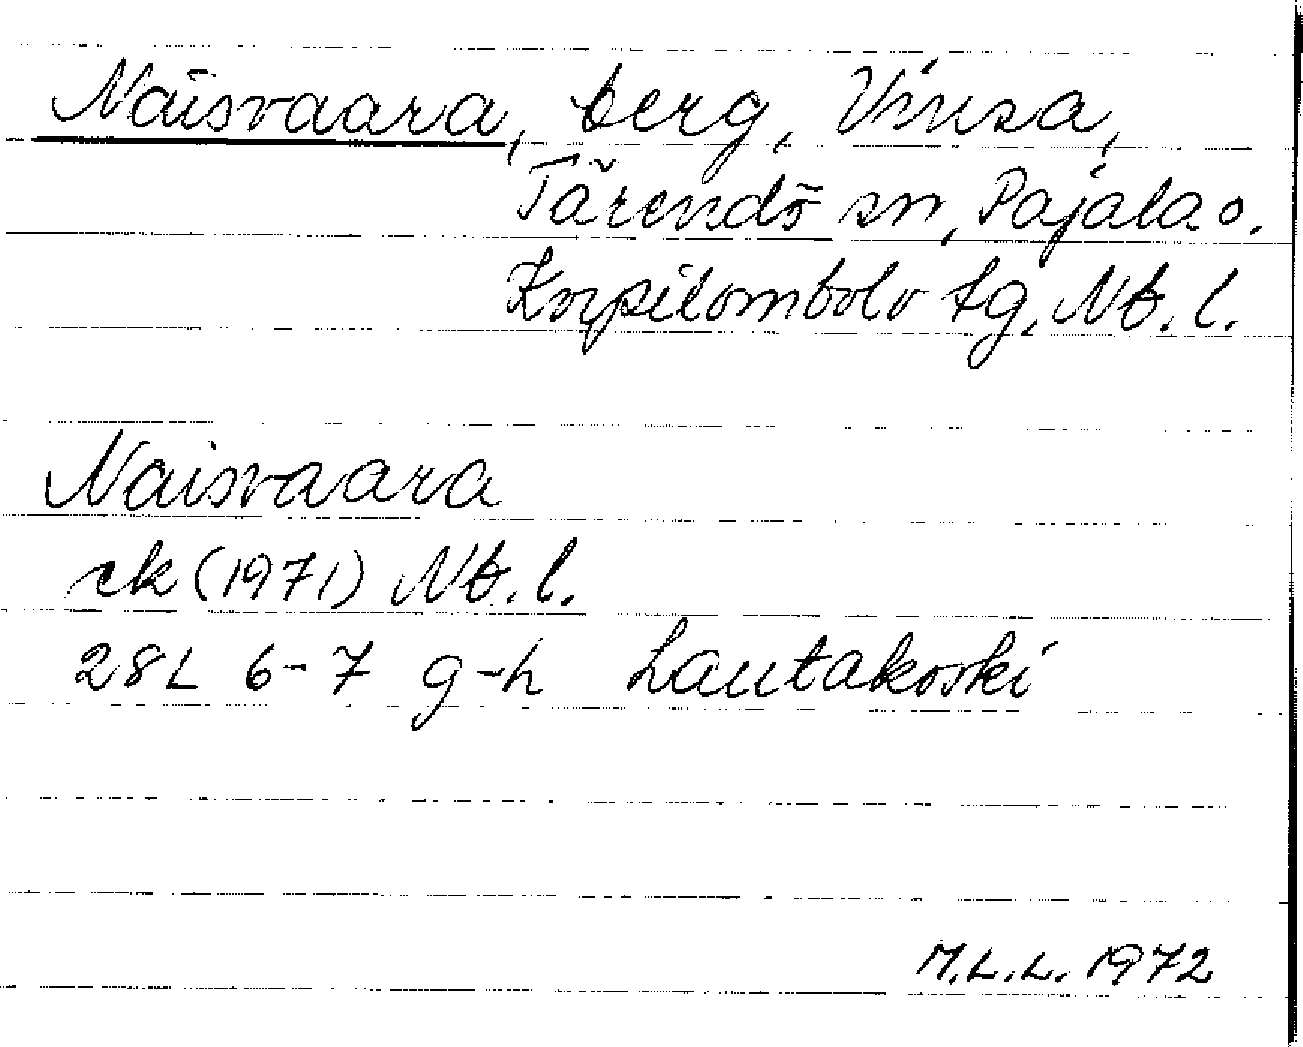 Naisvaara, berg, Vinsa,
Tärendö sn, Pajala o.
Korpilombolo tg, Nb. l.
Naisvaara
ek (1971) Nb. l.
28L 6-7 g-h Lautakoski
M.L.L. 1972